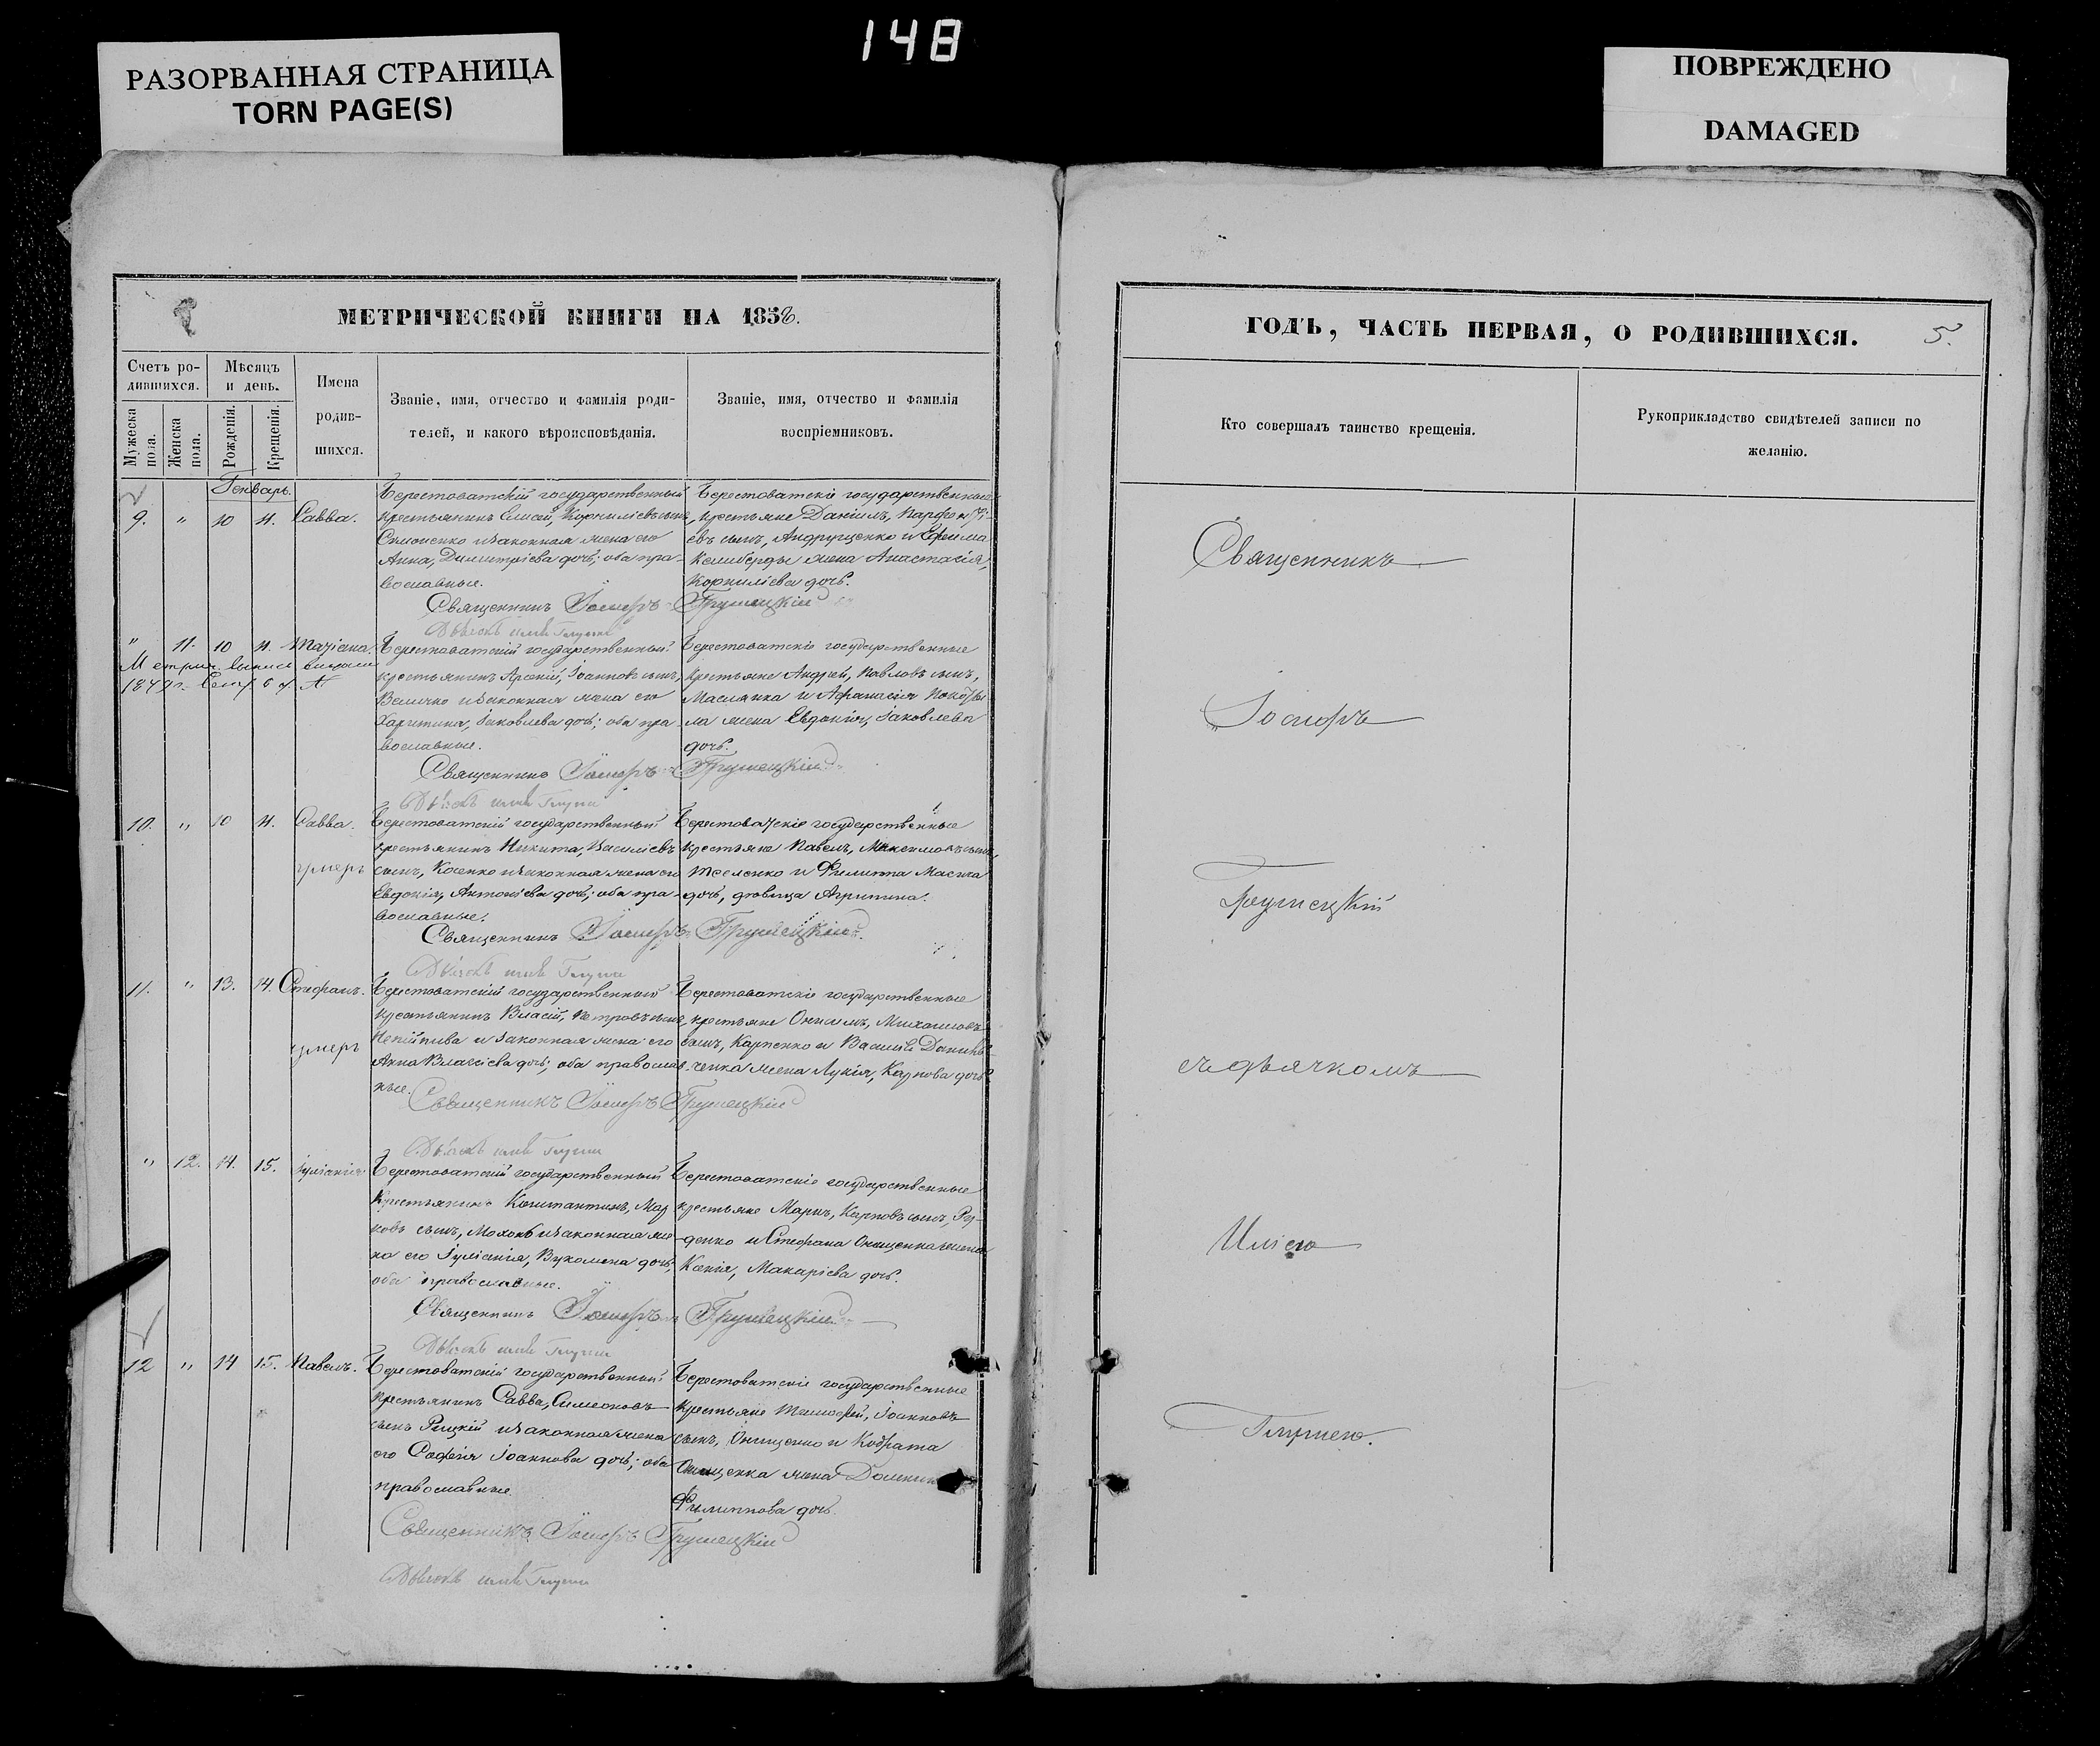 148
РАЗОРВАННАЯ СТРАНИЦА
TORN PAGE(S)
ПОВРЕЖДЕНО
DAMAGED
МЕТРИЧЕСКОЙ КНИГИ НА 1858.
Счетъ ро-
дившихся.
Мѣсяцъ
и день.
Мужеска
пола.
Женска
пола.
Рожденія.
Крещенія.
Имена
родив-
шихся.
Званіе, имя, отчество и фамилія роди-
телей, и какого вѣроисповѣданія.
Званіе, имя, отчество и фамилія
воспріемниковъ.
Генварь.
9. " 10 11. Савва.
Берестоватскій государственный
крестьянинъ Елисей, Корниліевъ сынъ,
Симоненко и законная жена его
Анна, Димитріева дочь; оба пра-
вославные.
Берестоватскіе государственные
крестьяне Даніилъ,
евъ сынъ, Андрущенко и Ефима
жена Анастасія,
Корниліева дочь.
Священникъ Іосифъ Грушецкій
" 11. 10 11.
Берестоватскій государственный
крестьянинъ Арсеній, Іоанновъ сынъ,
Величко и законная жена его
Харитина, Іаковлева дочь; оба пра-
вославные.
Берестоватскіе государственные
крестьяне Андрей, Павловъ сынъ,
Маслянка и Афанасія
ла жена Евдокія, Іаковлева
дочь.
Священникъ Іосифъ Грушецкій
10. " 10 11. Савва.
умеръ
Берестоватскій государственный
крестьянинъ Никита, Василіевъ
сынъ, Косенко и законная жена его
Евдокія, Антоніева дочь; оба пра-
вославные.
Берестоватскіе государственные
крестьяне Павелъ, Максимовъ сынъ,
и Филиппа
дочь, дѣвица Агрипина.
Священникъ Іосифъ Грушецкій
11. " 13. 14. Стефанъ.
умеръ
Берестоватскій государственный
крестьянинъ Власій, Петровъ сынъ,
Непійпива и законная жена его
Анна Власіева дочь; оба православ-
ные.
Берестоватскіе государственные
крестьяне Онисимъ, Михаиловъ
сынъ, Карпенко и Василія Данил-
ченка жена Лукія, Карпова дочь.
Священникъ Іосифъ Грушецкій
" 12. 14. 15. Іуліанія
Берестоватскій государственный
крестьянинъ Константинъ, Мар-
ковъ сынъ, и законная же-
на его Іуліанія, дочь;
оба православные.
Берестоватскіе государственные
крестьяне Маркъ, Карповъ сынъ, Ру-
денко и Стефана Онищенка жена
Ксенія, Макаріева дочь.
Священникъ Іосифъ Грушецкій
12 " 14 15. Павелъ.
Берестоватскій государственный
крестьянинъ Савва, Симеоновъ
сынъ и законная жена
его Софія Іоаннова дочь; оба
православные.
Берестоватскіе государственные
крестьяне Тимофей, Іоанновъ
сынъ, Онищенко и Кодрата
Онищенка жена
Филиппова дочь.
Священникъ Іосифъ Грушецкій
ГОДЪ, ЧАСТЬ ПЕРВАЯ, О РОДИВШИХСЯ.
5.
Кто совершалъ таинство крещенія.
Рукоприкладство свидѣтелей записи по
желанію.
Священникъ
Іосифъ
Грушецкій
съ дьячкомъ
Иліею